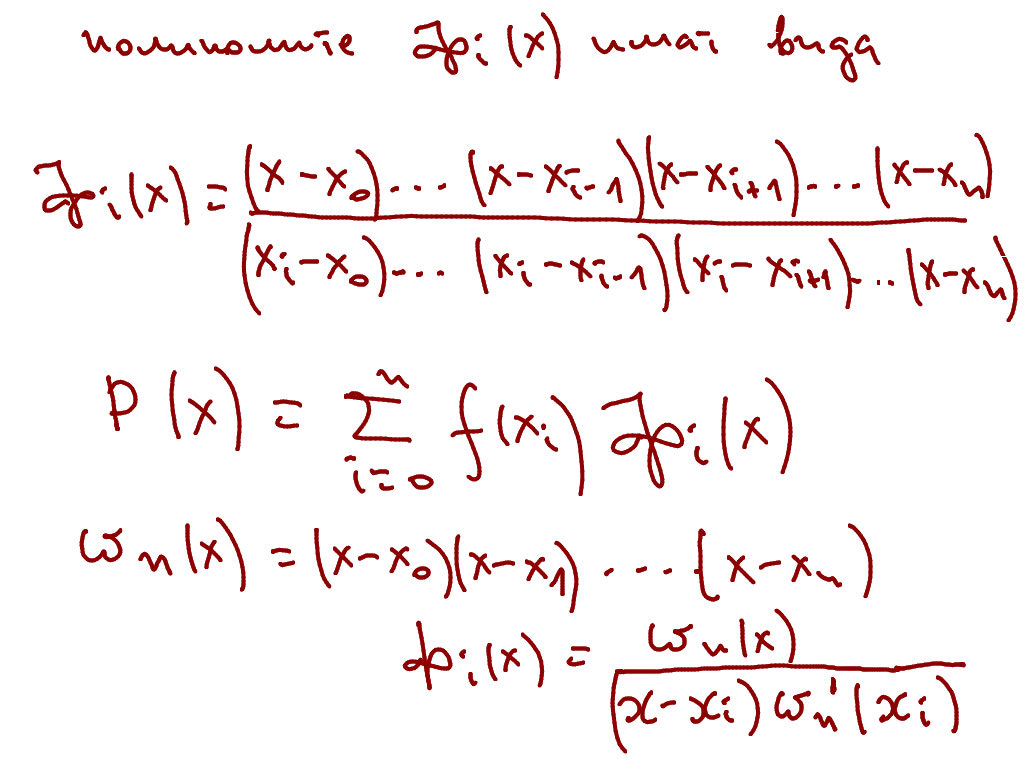 полиномите φᵢ(x) имат вида
φᵢ(x) = ((x-x₀)....(x-xᵢ₋₁)(x-xᵢ₊₁)....(x-xₙ)) / ((xᵢ-x₀)....(xᵢ-xᵢ₋₁)(xᵢ-xᵢ₊₁)....(x-xₙ))
P(x) = ∑ᵢ₌₀ⁿ f(xᵢ) φᵢ(x)
ωₙ(x) = (x-x₀)(x-x₁).....(x-xₙ)
φᵢ(x) = ωₙ(x) / ((x-xᵢ) ωₙ'(xᵢ))